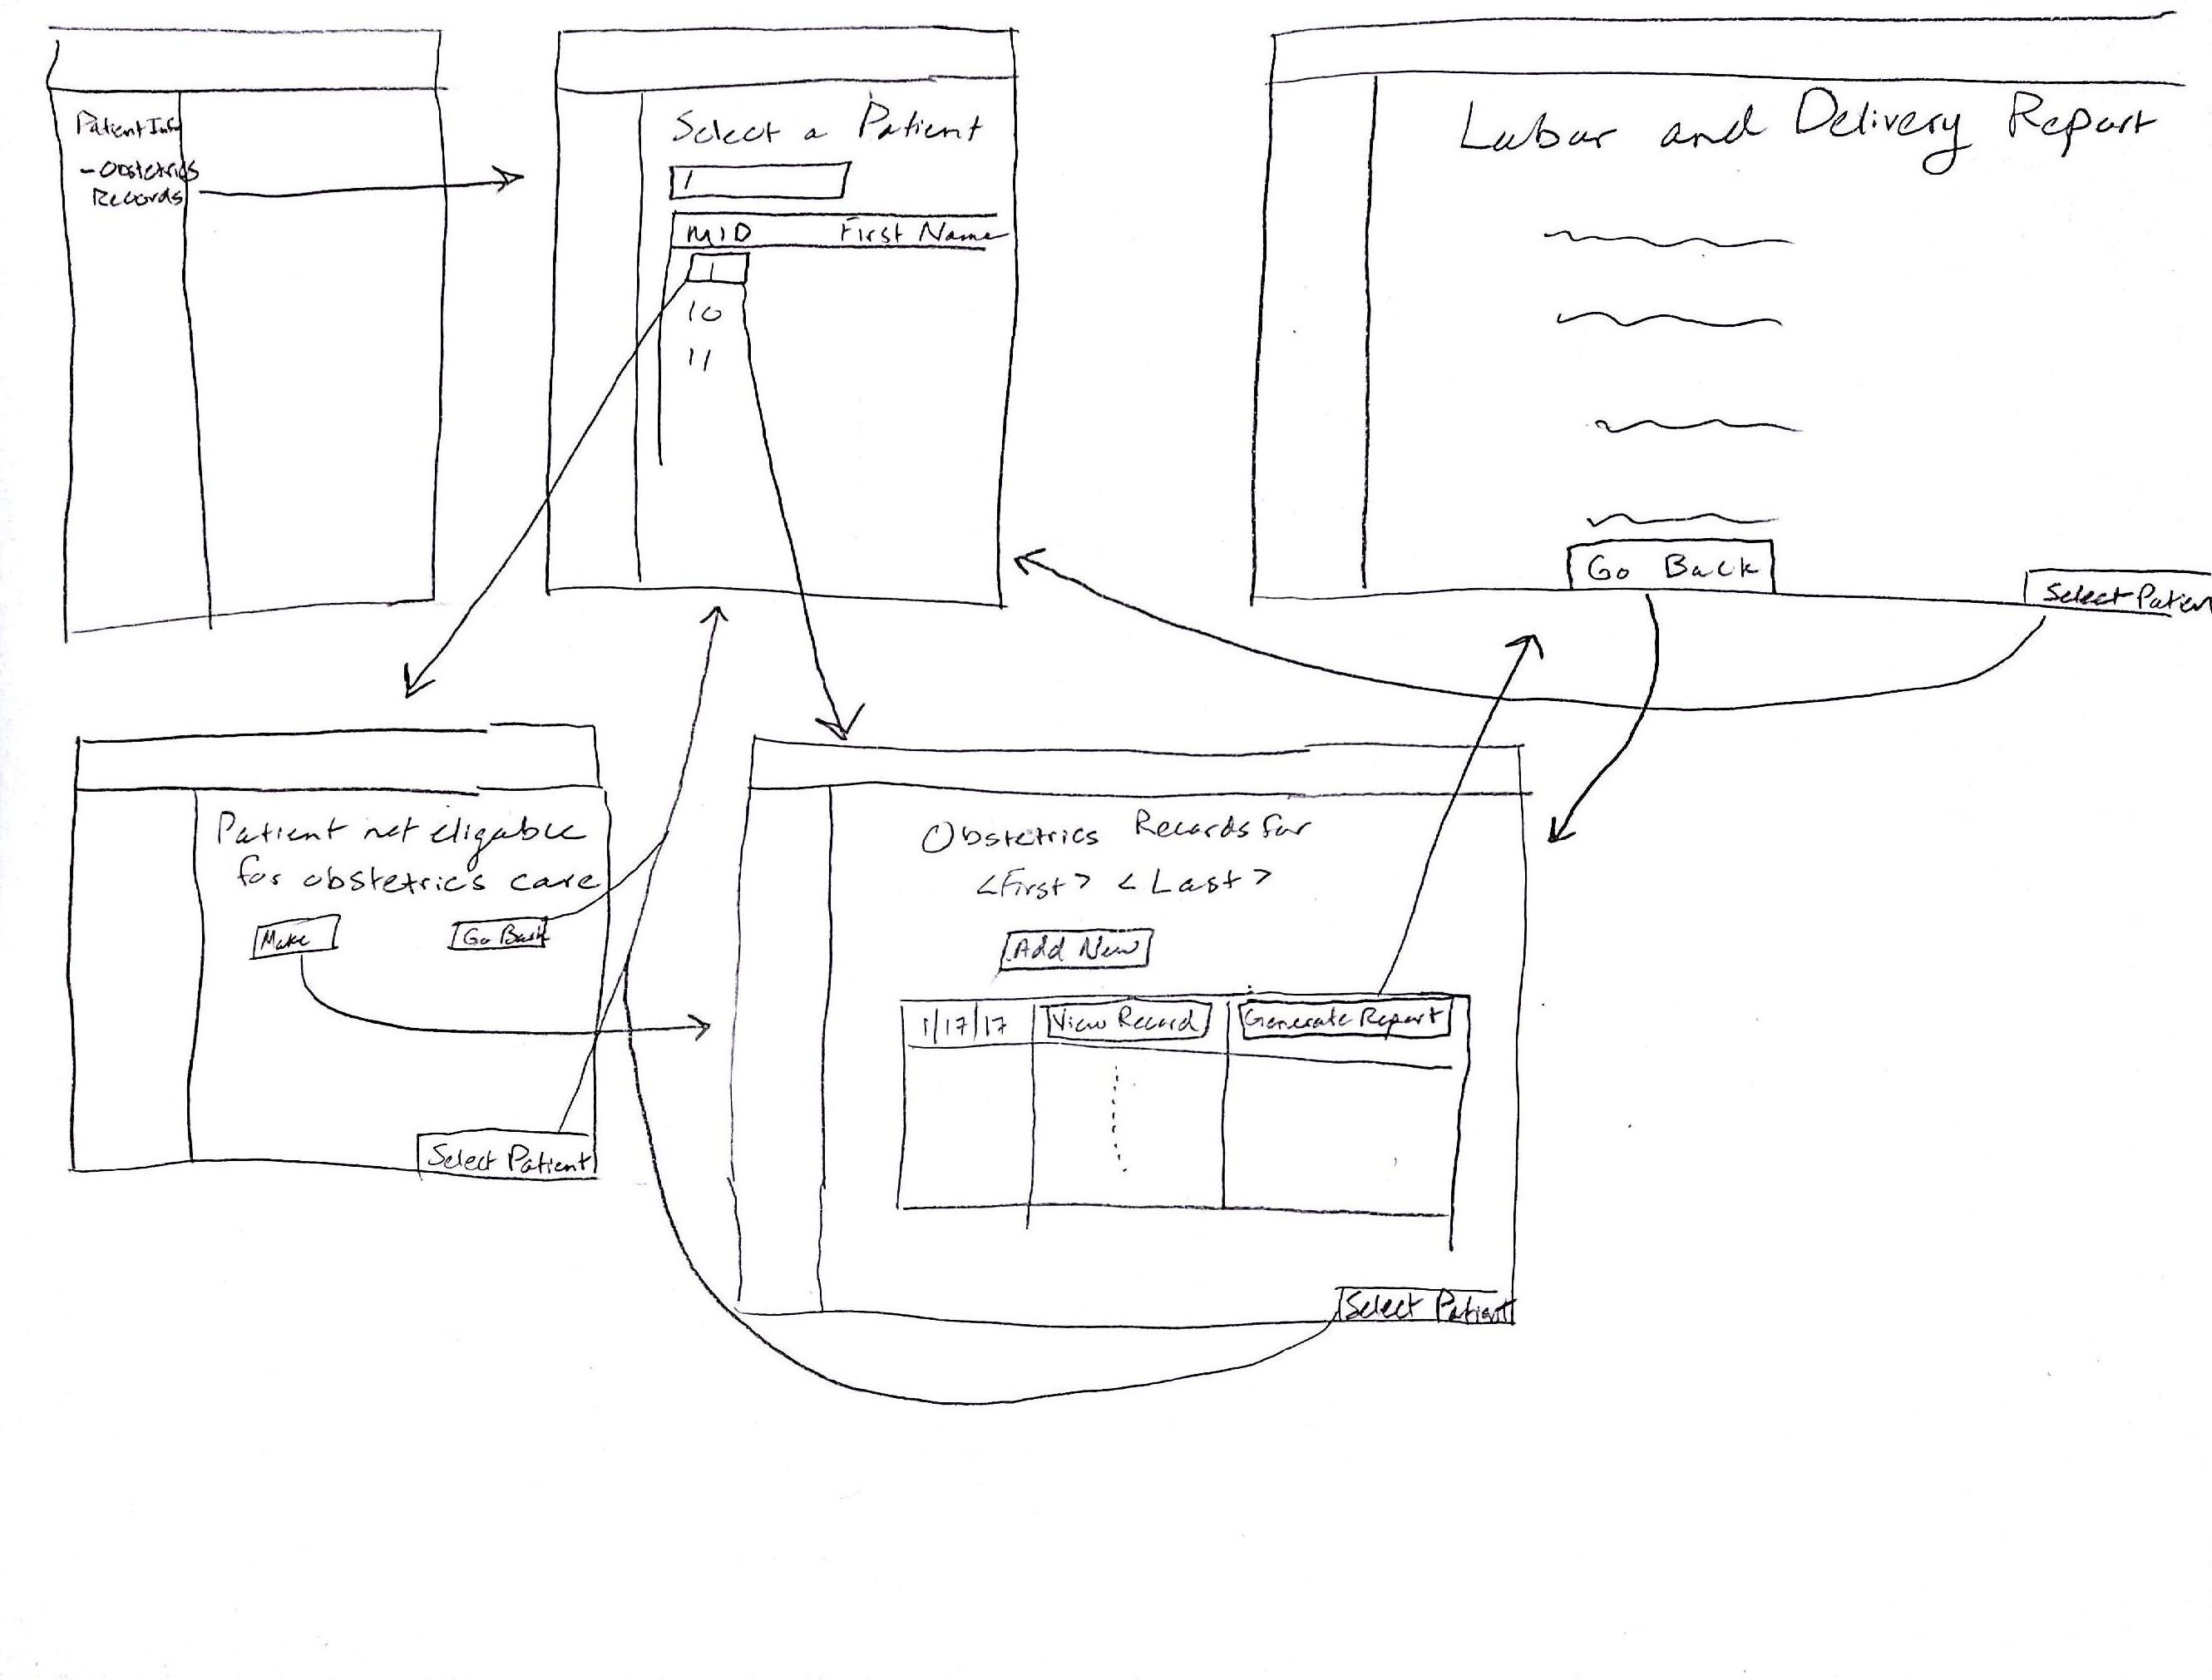 Patient Info
- Obstetrics
Records
Select a Patient
1
MID First Name
1
10
11
Labor and Delivery Report
Go Back
Select Patien
Patient not eligable
for obstetrics care
Make
Go Back
Select Patient
Obstetrics Records for
<First> <Last>
Add New
1/17/17 View Record Generate Report
Select Patient